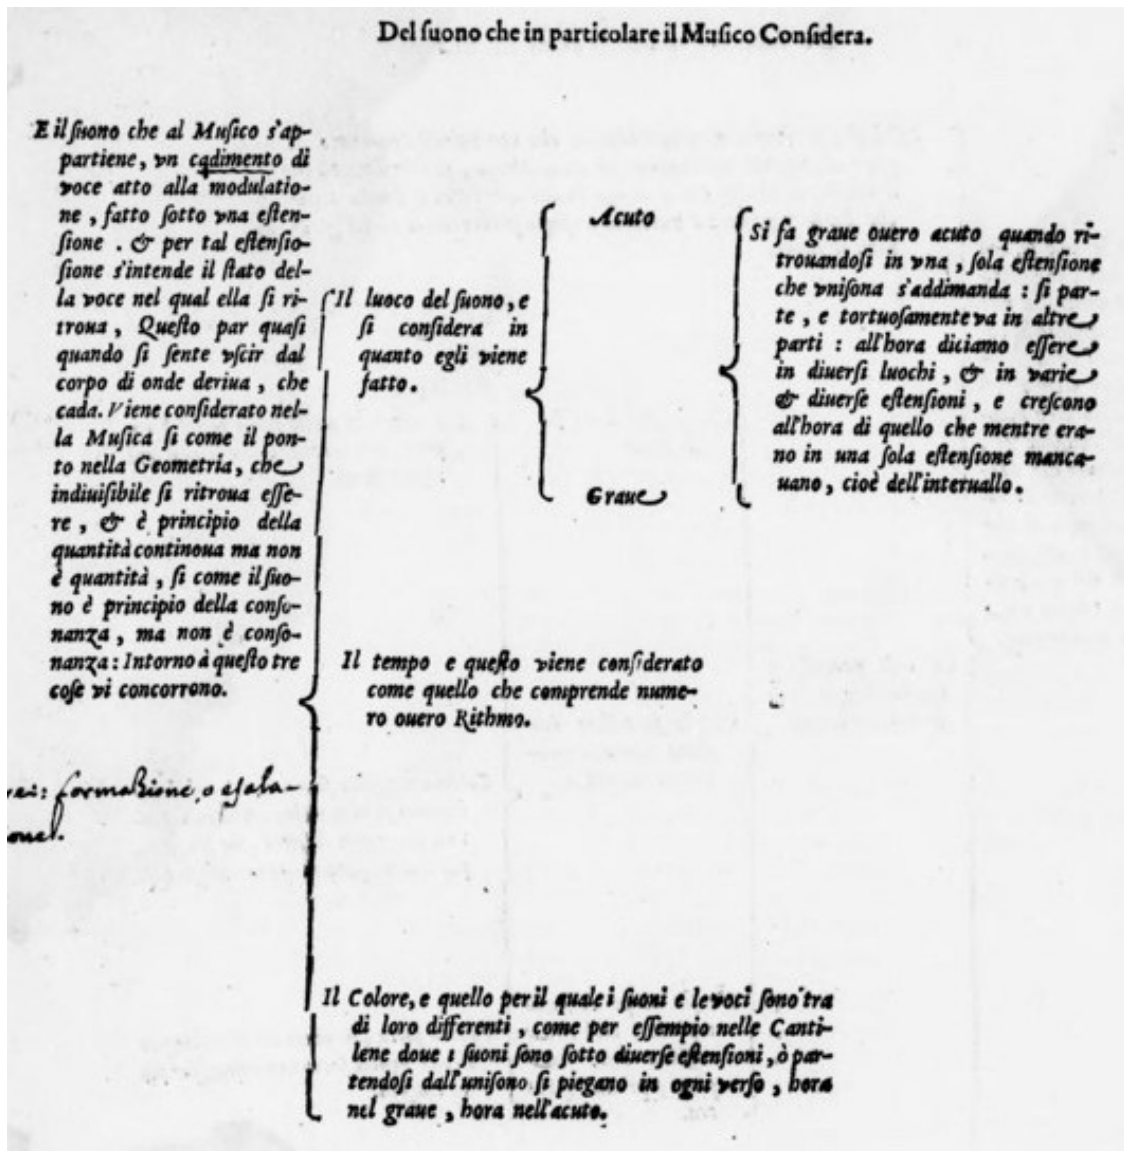 Del ſuono che in particolare il Muſico Conſidera.
E il ſuono che al Muſico s'ap-
partiene, vn cadimento di
voce atto alla modulatio-
ne, fatto ſotto vna eſten-
ſione. & per tal eſtenſio-
ſione s'intende il ſtato del-
la voce nel qual ella ſi ri-
troua, Queſto par quaſi
quando ſi ſente vſcir dal
corpo di onde deriua, che
cada. Viene conſiderato nel-
la Muſica ſi come il pon-
to nella Geometria, che
indiuiſibile ſi ritroua eſſe-
re, & è principio della
quantità continoua ma non
è quantità, ſi come il ſuo-
no è principio della conſo-
nanza, ma non è conſo-
nanza: Intorno à queſto tre
coſe vi concorrono.
formazione, o eſala-
Il luoco del ſuono, e
ſi conſidera in
quanto egli viene
fatto.
Acuto
Graue
Si fa graue ouero acuto quando ri-
trouandoſi in vna, ſola eſtenſione
che vniſona s'addimanda: ſi par-
te, e tortuoſamente va in altre
parti: all'hora diciamo eſſere
in diuerſi luochi, & in varie
& diuerſe eſtenſioni, e creſcono
all'hora di quello che mentre era-
no in una ſola eſtenſione manca-
uano, cioè dell'interuallo.
Il tempo e queſto viene conſiderato
come quello che comprende nume-
ro ouero Rithmo.
Il Colore, e quello per il quale i ſuoni e le voci ſono tra
di loro differenti, come per eſſempio nelle Canti-
lene doue i ſuoni ſono ſotto diuerſe eſtenſioni, ò par-
tendoſi dall'uniſono ſi piegano in ogni verſo, hora
nel graue, hora nell'acuto.